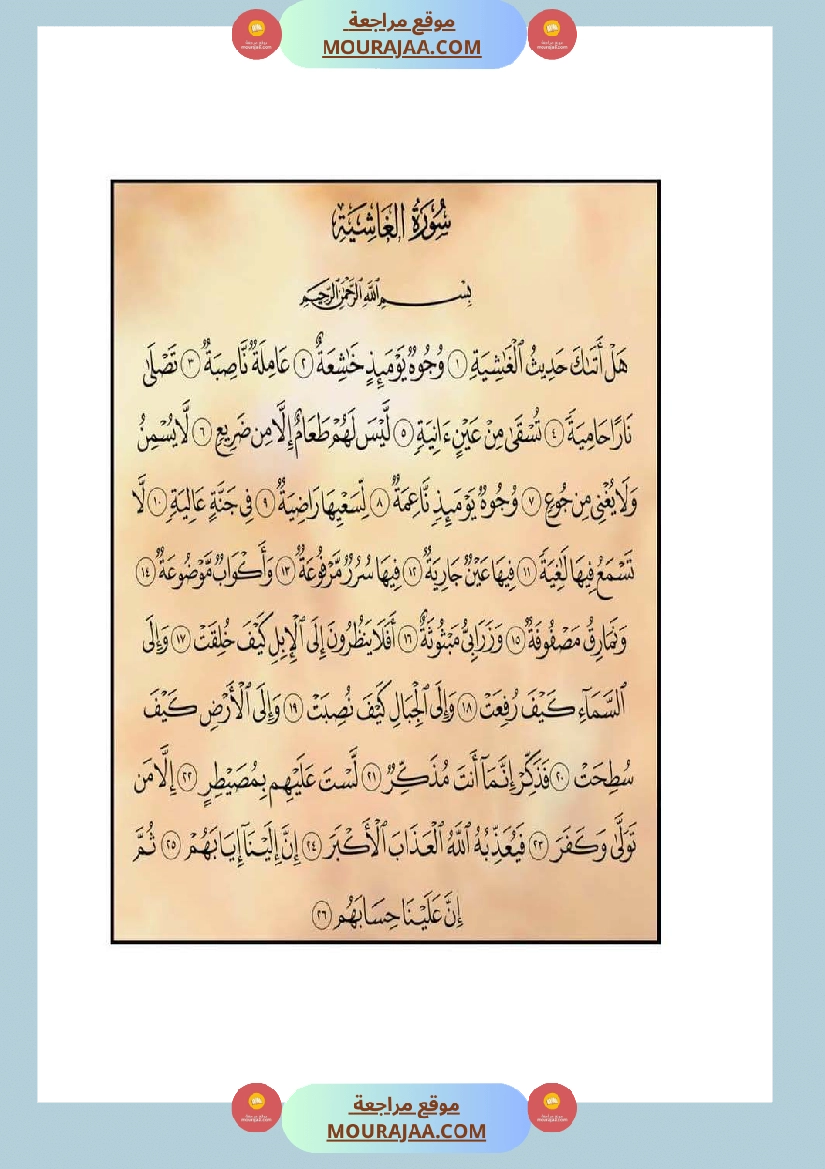 موقع مراجعة
MOURAJAA.COM
سُورَةُ الْغَاشِيَةِ
بِسْمِ اللَّهِ الرَّحْمَٰنِ الرَّحِيمِ
هَلْ أَتَىٰكَ حَدِيثُ ٱلْغَٰشِيَةِ ١ وُجُوهٌ يَوْمَئِذٍ خَٰشِعَةٌ ٢ عَامِلَةٌ نَّاصِبَةٌ ٣ تَصْلَىٰ
نَارًا حَامِيَةً ٤ تُسْقَىٰ مِنْ عَيْنٍ ءَانِيَةٍ ٥ لَّيْسَ لَهُمْ طَعَامٌ إِلَّا مِن ضَرِيعٍ ٦ لَّا يُسْمِنُ
وَلَا يُغْنِى مِن جُوعٍ ٧ وُجُوهٌ يَوْمَئِذٍ نَّاعِمَةٌ ٨ لِّسَعْيِهَا رَاضِيَةٌ ٩ فِى جَنَّةٍ عَالِيَةٍ ١٠ لَّا
تَسْمَعُ فِيهَا لَٰغِيَةً ١١ فِيهَا عَيْنٌ جَارِيَةٌ ١٢ فِيهَا سُرُرٌ مَّرْفُوعَةٌ ١٣ وَأَكْوَابٌ مَّوْضُوعَةٌ ١٤
وَنَمَارِقُ مَصْفُوفَةٌ ١٥ وَزَرَابِىُّ مَبْثُوثَةٌ ١٦ أَفَلَا يَنظُرُونَ إِلَى ٱلْإِبِلِ كَيْفَ خُلِقَتْ ١٧ وَإِلَى
ٱلسَّمَآءِ كَيْفَ رُفِعَتْ ١٨ وَإِلَى ٱلْجِبَالِ كَيْفَ نُصِبَتْ ١٩ وَإِلَى ٱلْأَرْضِ كَيْفَ
سُطِحَتْ ٢٠ فَذَكِّرْ إِنَّمَآ أَنتَ مُذَكِّرٌ ٢١ لَّسْتَ عَلَيْهِم بِمُصَيْطِرٍ ٢٢ إِلَّا مَن
تَوَلَّىٰ وَكَفَرَ ٢٣ فَيُعَذِّبُهُ ٱللَّهُ ٱلْعَذَابَ ٱلْأَكْبَرَ ٢٤ إِنَّ إِلَيْنَآ إِيَابَهُمْ ٢٥ ثُمَّ
إِنَّ عَلَيْنَا حِسَابَهُم ٢٦
موقع مراجعة
MOURAJAA.COM